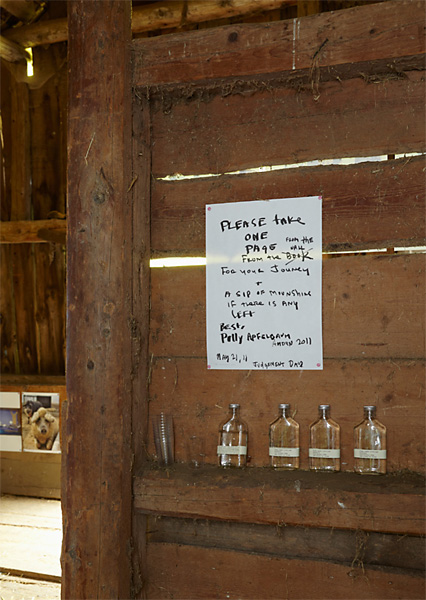 PLEASE take
ONE
PAGE FROM the
WALL
From the Book
For your Journey
+
A SIP OF MOONSHINE
IF THERE IS ANY
LEFT
Best,
Polly APFELBAUM
2011
May 21, 11
Judgement Day